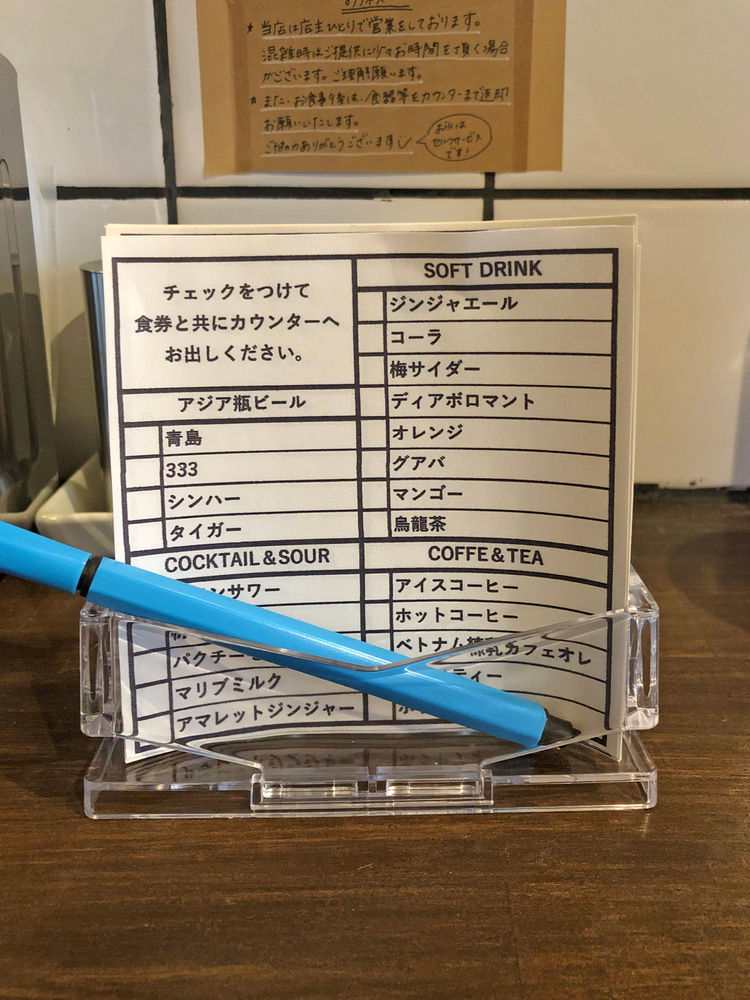 * 当店は店主ひとりで営業をしております。
混雑時はご提供に少々お時間を頂く場合
がございます。ご理解願います。
* また、お食事後は、食器等をカウンターまで返却
お願いいたします。
ご協力ありがとうございます
お水は
セルフサービス
です!
チェックをつけて
食券と共にカウンターへ
お出しください。
アジア瓶ビール
青島
333
シンハー
タイガー
COCKTAIL&SOUR
ンサワー
パクチー
マリブミルク
アマレットジンジャー
SOFT DRINK
ジンジャエール
コーラ
梅サイダー
ディアボロマント
オレンジ
グアバ
マンゴー
烏龍茶
COFFE&TEA
アイスコーヒー
ホットコーヒー
ベトナム練乳カフェオレ
ティー